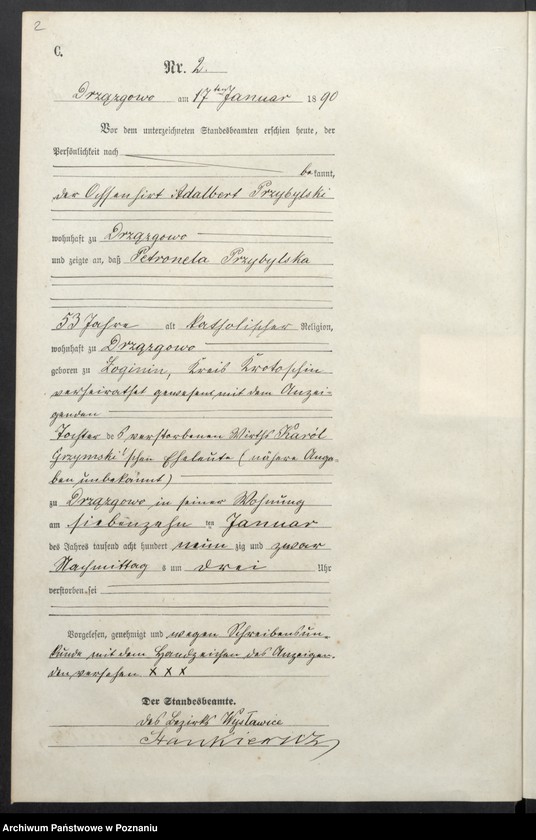 2
C.
Nr. 2.
Drzązgowo am 17ten Januar 1890
Vor dem unterzeichneten Standesbeamten erschien heute, der
Persönlichkeit nach
bekannt,
der Ochsenhirt Adalbert Przybylski
wohnhaft zu Drzązgowo
und zeigte an, daß Petronela Przybylska
53 Jahre alt katholischer Religion,
wohnhaft zu Drzązgowo
geboren zu Loginin, Kreis Krotoschin
verheirathet gewesen mit dem Anzei-
genden
Tochter des verstorbenen Wirths Karól
Grzymski'schen Eheleute (nähere Anga-
ben unbekannt)
zu Drzązgowo in seiner Wohnung
am siebenzehn ten Januar
des Jahres tausend acht hundert neun zig und zwar
Nachmittag s um drei Uhr
verstorben sei
Vorgelesen, genehmigt und wegen Schreibensun-
kunde mit dem Handzeichen des Anzeigen-
den versehen x x x
Der Standesbeamte.
des Bezirks Wysławice
Stankiewicz
Archiwum Państwowe w Poznaniu